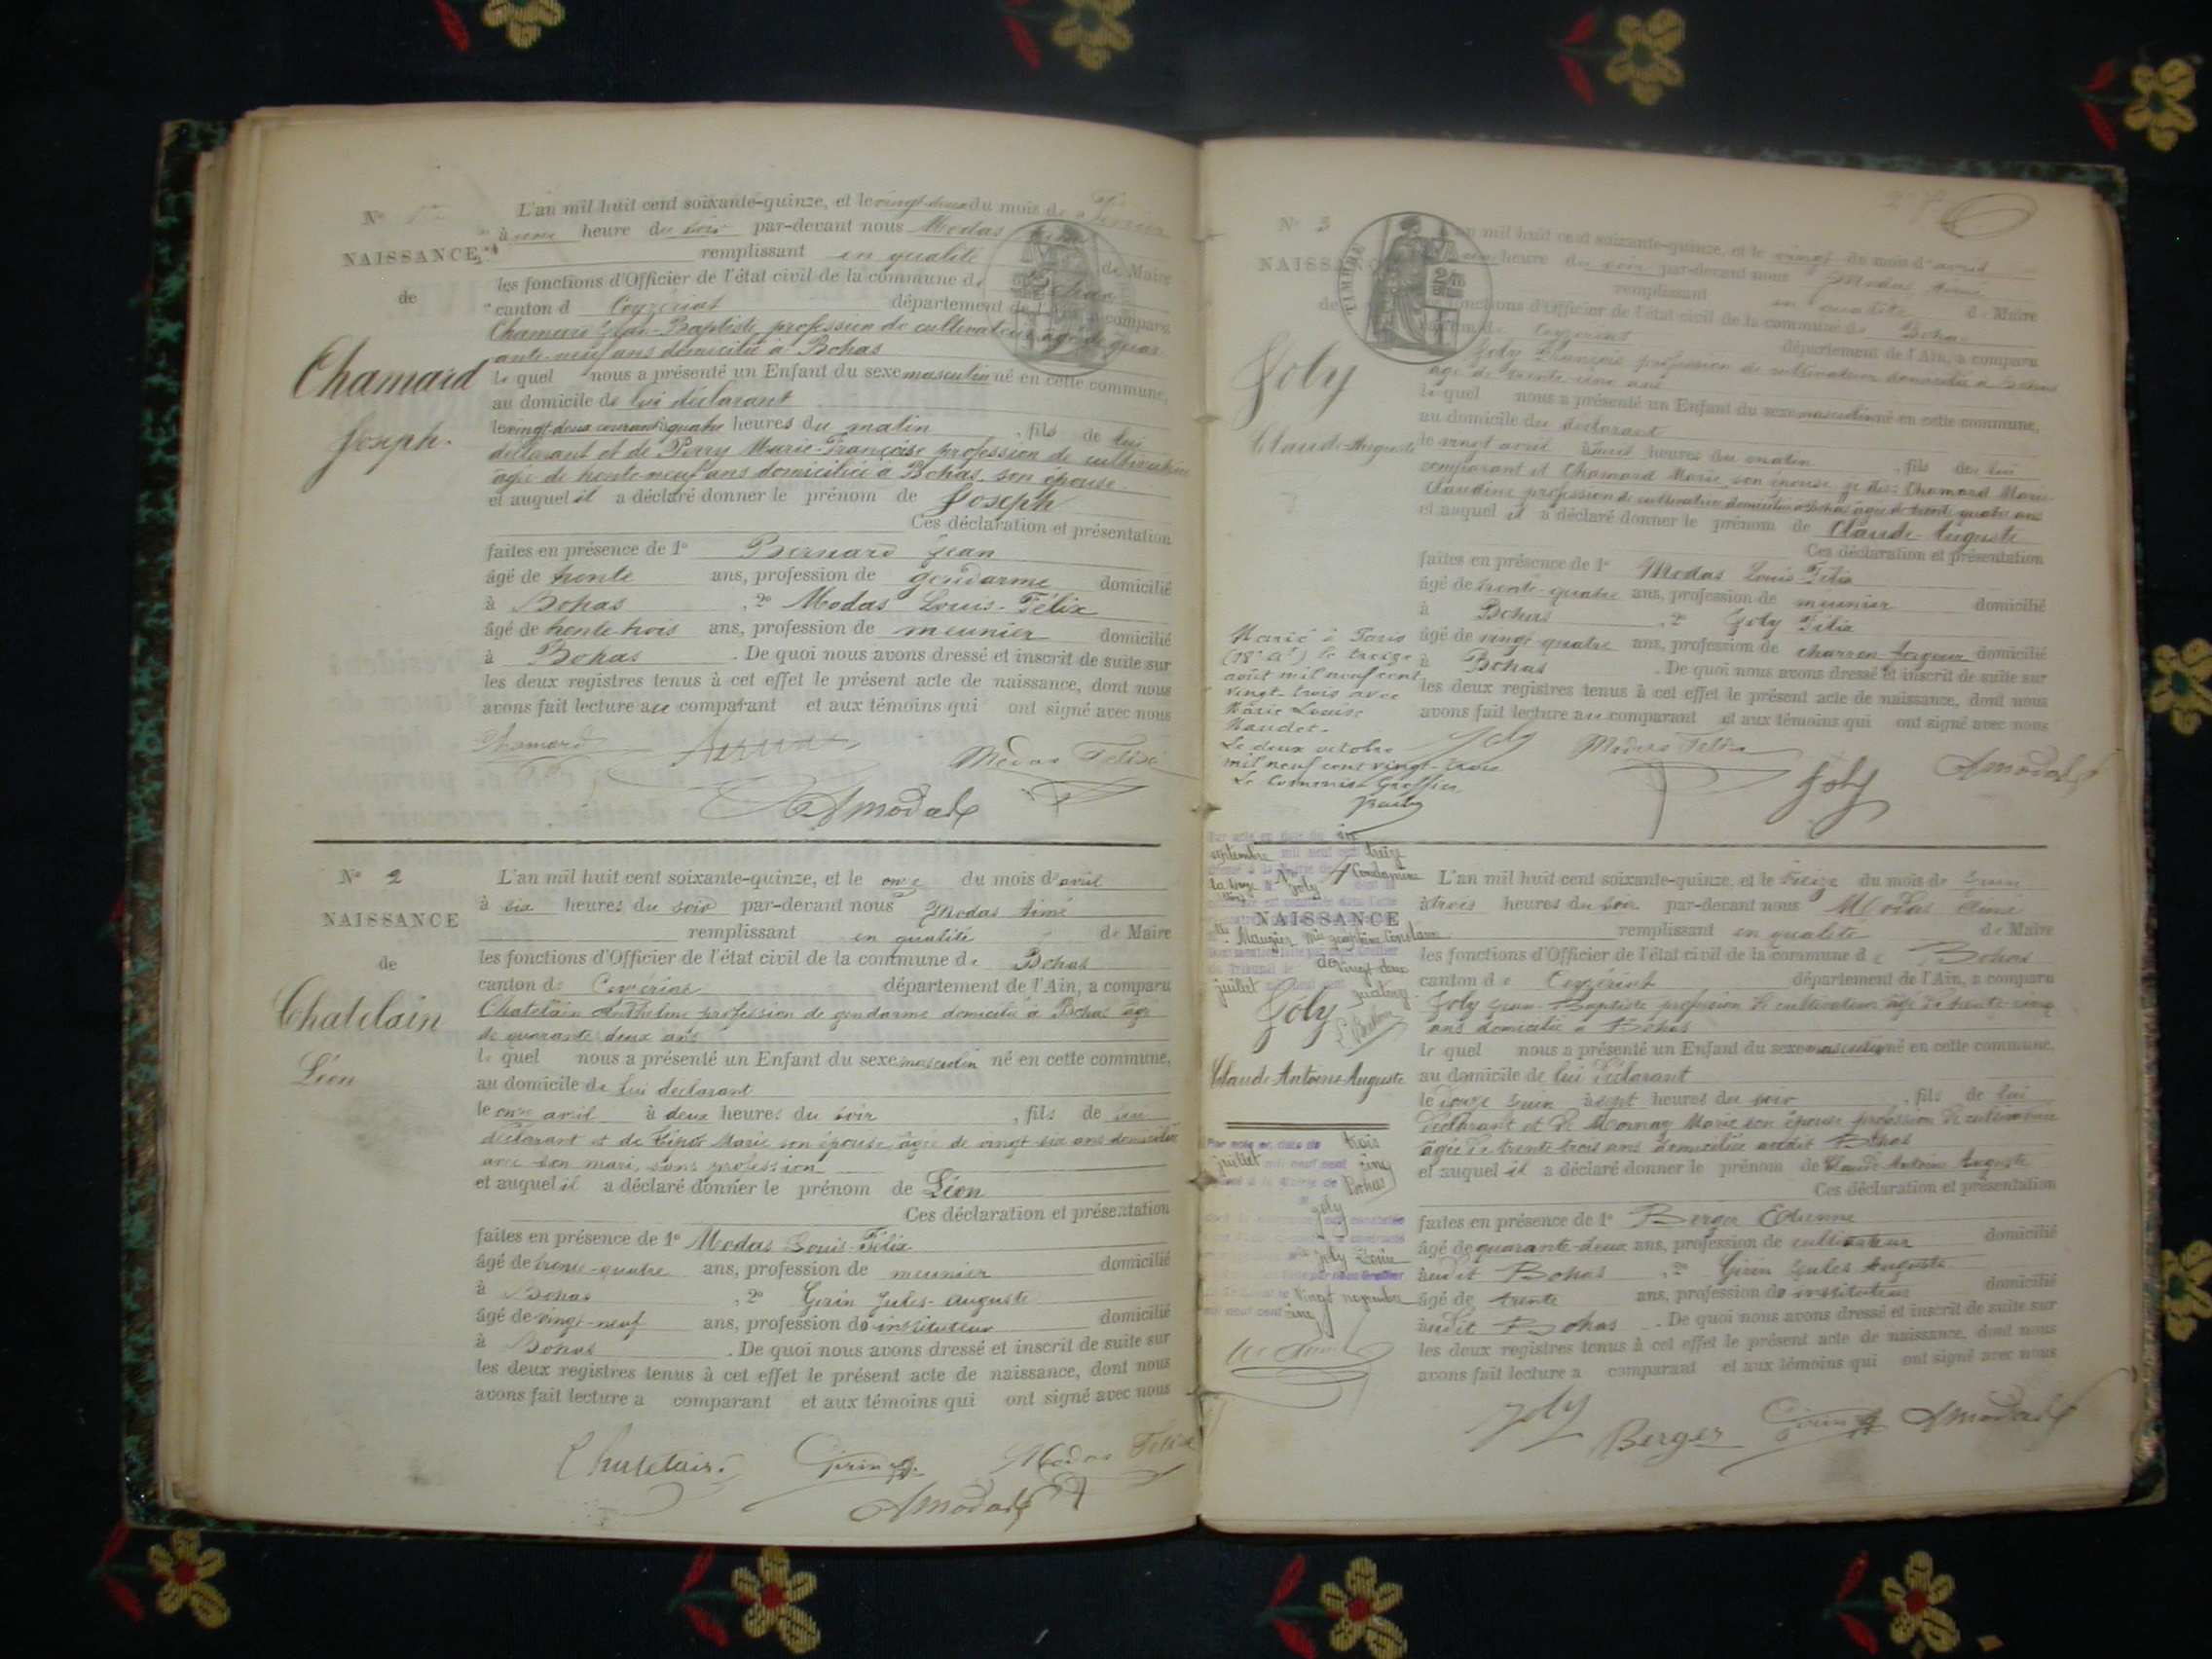 N° 1er
NAISSANCE
de
Chamard
Joseph.
L'an mil huit cent soixante-quinze, et le vingt-deux du mois de Février
à une heure du soir par-devant nous Modas
remplissant en qualité de Maire
les fonctions d'Officier de l'état civil de la commune de Bohas
canton d Ceyzériat département de l'Ain, a comparu
Chamard Jean-Baptiste profession de cultivateur âgé de quar
ante-neuf ans domicilié à Bohas
le quel nous a présenté un Enfant du sexe masculin né en cette commune,
au domicile de lui déclarant
le vingt-deux courant à quatre heures du matin , fils de lui
déclarant et de Perry Marie-Françoise profession de cultivatrice
âgée de trente-neuf ans domiciliée à Bohas, son épouse
et auquel il a déclaré donner le prénom de Joseph
Ces déclaration et présentation
faites en présence de 1° Bernard Jean
âgé de trente ans, profession de gendarme domicilié
à Bohas , 2° Modas Louis-Félix
âgé de trente trois ans, profession de meunier domicilié
à Bohas . De quoi nous avons dressé et inscrit de suite sur
les deux registres tenus à cet effet le présent acte de naissance, dont nous
avons fait lecture au comparant et aux témoins qui ont signé avec nous
Chamard
Modas Félix
AModas
N° 2
NAISSANCE
de
Chatelain
Léon
L'an mil huit cent soixante-quinze, et le onze du mois d'avril
à six heures du soir par-devant nous Modas Aimé
remplissant en qualité de Maire
les fonctions d'Officier de l'état civil de la commune de Bohas
canton de Ceyzériat département de l'Ain, a comparu
Chatelain Anthelme profession de gendarme domicilié à Bohas âgé
de quarante deux ans
le quel nous a présenté un Enfant du sexe masculin né en cette commune,
au domicile de lui déclarant
le onze avril à deux heures du soir , fils de lui
déclarant et de Marie son épouse âgée de vingt six ans domiciliée
avec son mari, sans profession
et auquel il a déclaré donner le prénom de Léon
Ces déclaration et présentation
faites en présence de 1° Modas Louis-Félix
âgé de trente-quatre ans, profession de meunier domicilié
à Bohas , 2° Girin Jules-Auguste
âgé de vingt-neuf ans, profession d'instituteur domicilié
à Bohas . De quoi nous avons dressé et inscrit de suite sur
les deux registres tenus à cet effet le présent acte de naissance, dont nous
avons fait lecture a comparant et aux témoins qui ont signé avec nous
Chatelain Girin Modas Félix
AModas
N° 3
NAISSANCE
de
TIMBRE
Joly
Claude-Auguste
L'an mil huit cent soixante-quinze, et le vingt du mois d'avril
heure du soir par-devant nous Modas Aimé
remplissant en qualité de Maire
les fonctions d'Officier de l'état civil de la commune de Bohas
canton de Ceyzériat département de l'Ain, a comparu
Joly François profession de cultivateur domicilié à Bohas
âgé de trente-cinq ans
le quel nous a présenté un Enfant du sexe masculin né en cette commune,
au domicile du déclarant
le vingt avril à heures du matin , fils de lui
comparant et Chamard Marie son épouse, je dis: Chamard Marie-
Claudine profession de cultivatrice domiciliée à Bohas âgée de trente quatre ans
et auquel il a déclaré donner le prénom de Claude-Auguste
Ces déclaration et présentation
faites en présence de 1° Modas Louis-Félix
âgé de trente-quatre ans, profession de meunier domicilié
à Bohas , 2° Joly Félix
âgé de vingt quatre ans, profession de charron forgeur domicilié
à Bohas . De quoi nous avons dressé et inscrit de suite sur
les deux registres tenus à cet effet le présent acte de naissance, dont nous
avons fait lecture au comparant et aux témoins qui ont signé avec nous
Joly Modas Félix Joly AModas
Marié à Paris
(18e at) le treize
août mil neuf cent
vingt-trois avec
Marie Louise
Naudet.
Le deux octobre
mil neuf cent vingt-trois
Le Commis Greffier
septembre mil neuf cent treize
Joly
NAISSANCE
de vingt-deux
juillet quatorze
Joly
Claude Antoine Auguste
L'an mil huit cent soixante-quinze, et le treize du mois de Juin
à trois heures du soir par-devant nous Modas Aimé
remplissant en qualité de Maire
les fonctions d'Officier de l'état civil de la commune de Bohas
canton de Ceyzériat département de l'Ain, a comparu
Joly Jean-Baptiste profession de cultivateur âgé de trente-cinq
ans domicilié à Bohas
le quel nous a présenté un Enfant du sexe masculin né en cette commune,
au domicile de lui déclarant
le douze Juin à sept heures du soir , fils de lui
déclarant et de Monnay Marie son épouse profession de cultivatrice
âgée de trente trois ans domiciliée audit Bohas
et auquel il a déclaré donner le prénom de Claude Antoine Auguste
Ces déclaration et présentation
faites en présence de 1° Berger Etienne
âgé de quarante-deux ans, profession de cultivateur domicilié
audit Bohas , 2° Girin Jules Auguste
âgé de trente ans, profession d'instituteur domicilié
audit Bohas . De quoi nous avons dressé et inscrit de suite sur
les deux registres tenus à cet effet le présent acte de naissance, dont nous
avons fait lecture a comparant et aux témoins qui ont signé avec nous
Joly Berger Girin AModas
trois
juillet mil neuf cent cinq
Bohas
Joly
Joly Louise
vingt novembre
mil neuf cent cinq